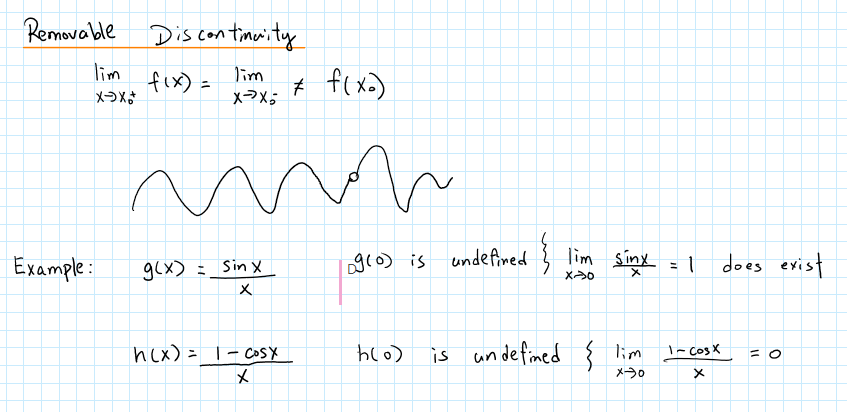 Removable Discontinuity
lim x→x₀⁺ f(x) = lim x→x₀⁻ ≠ f(x₀)
Example: g(x) = sin x / x g(0) is undefined } lim x→0 sin x / x = 1 does exist
h(x) = 1 - cos x / x h(0) is undefined { lim x→0 1 - cos x / x = 0